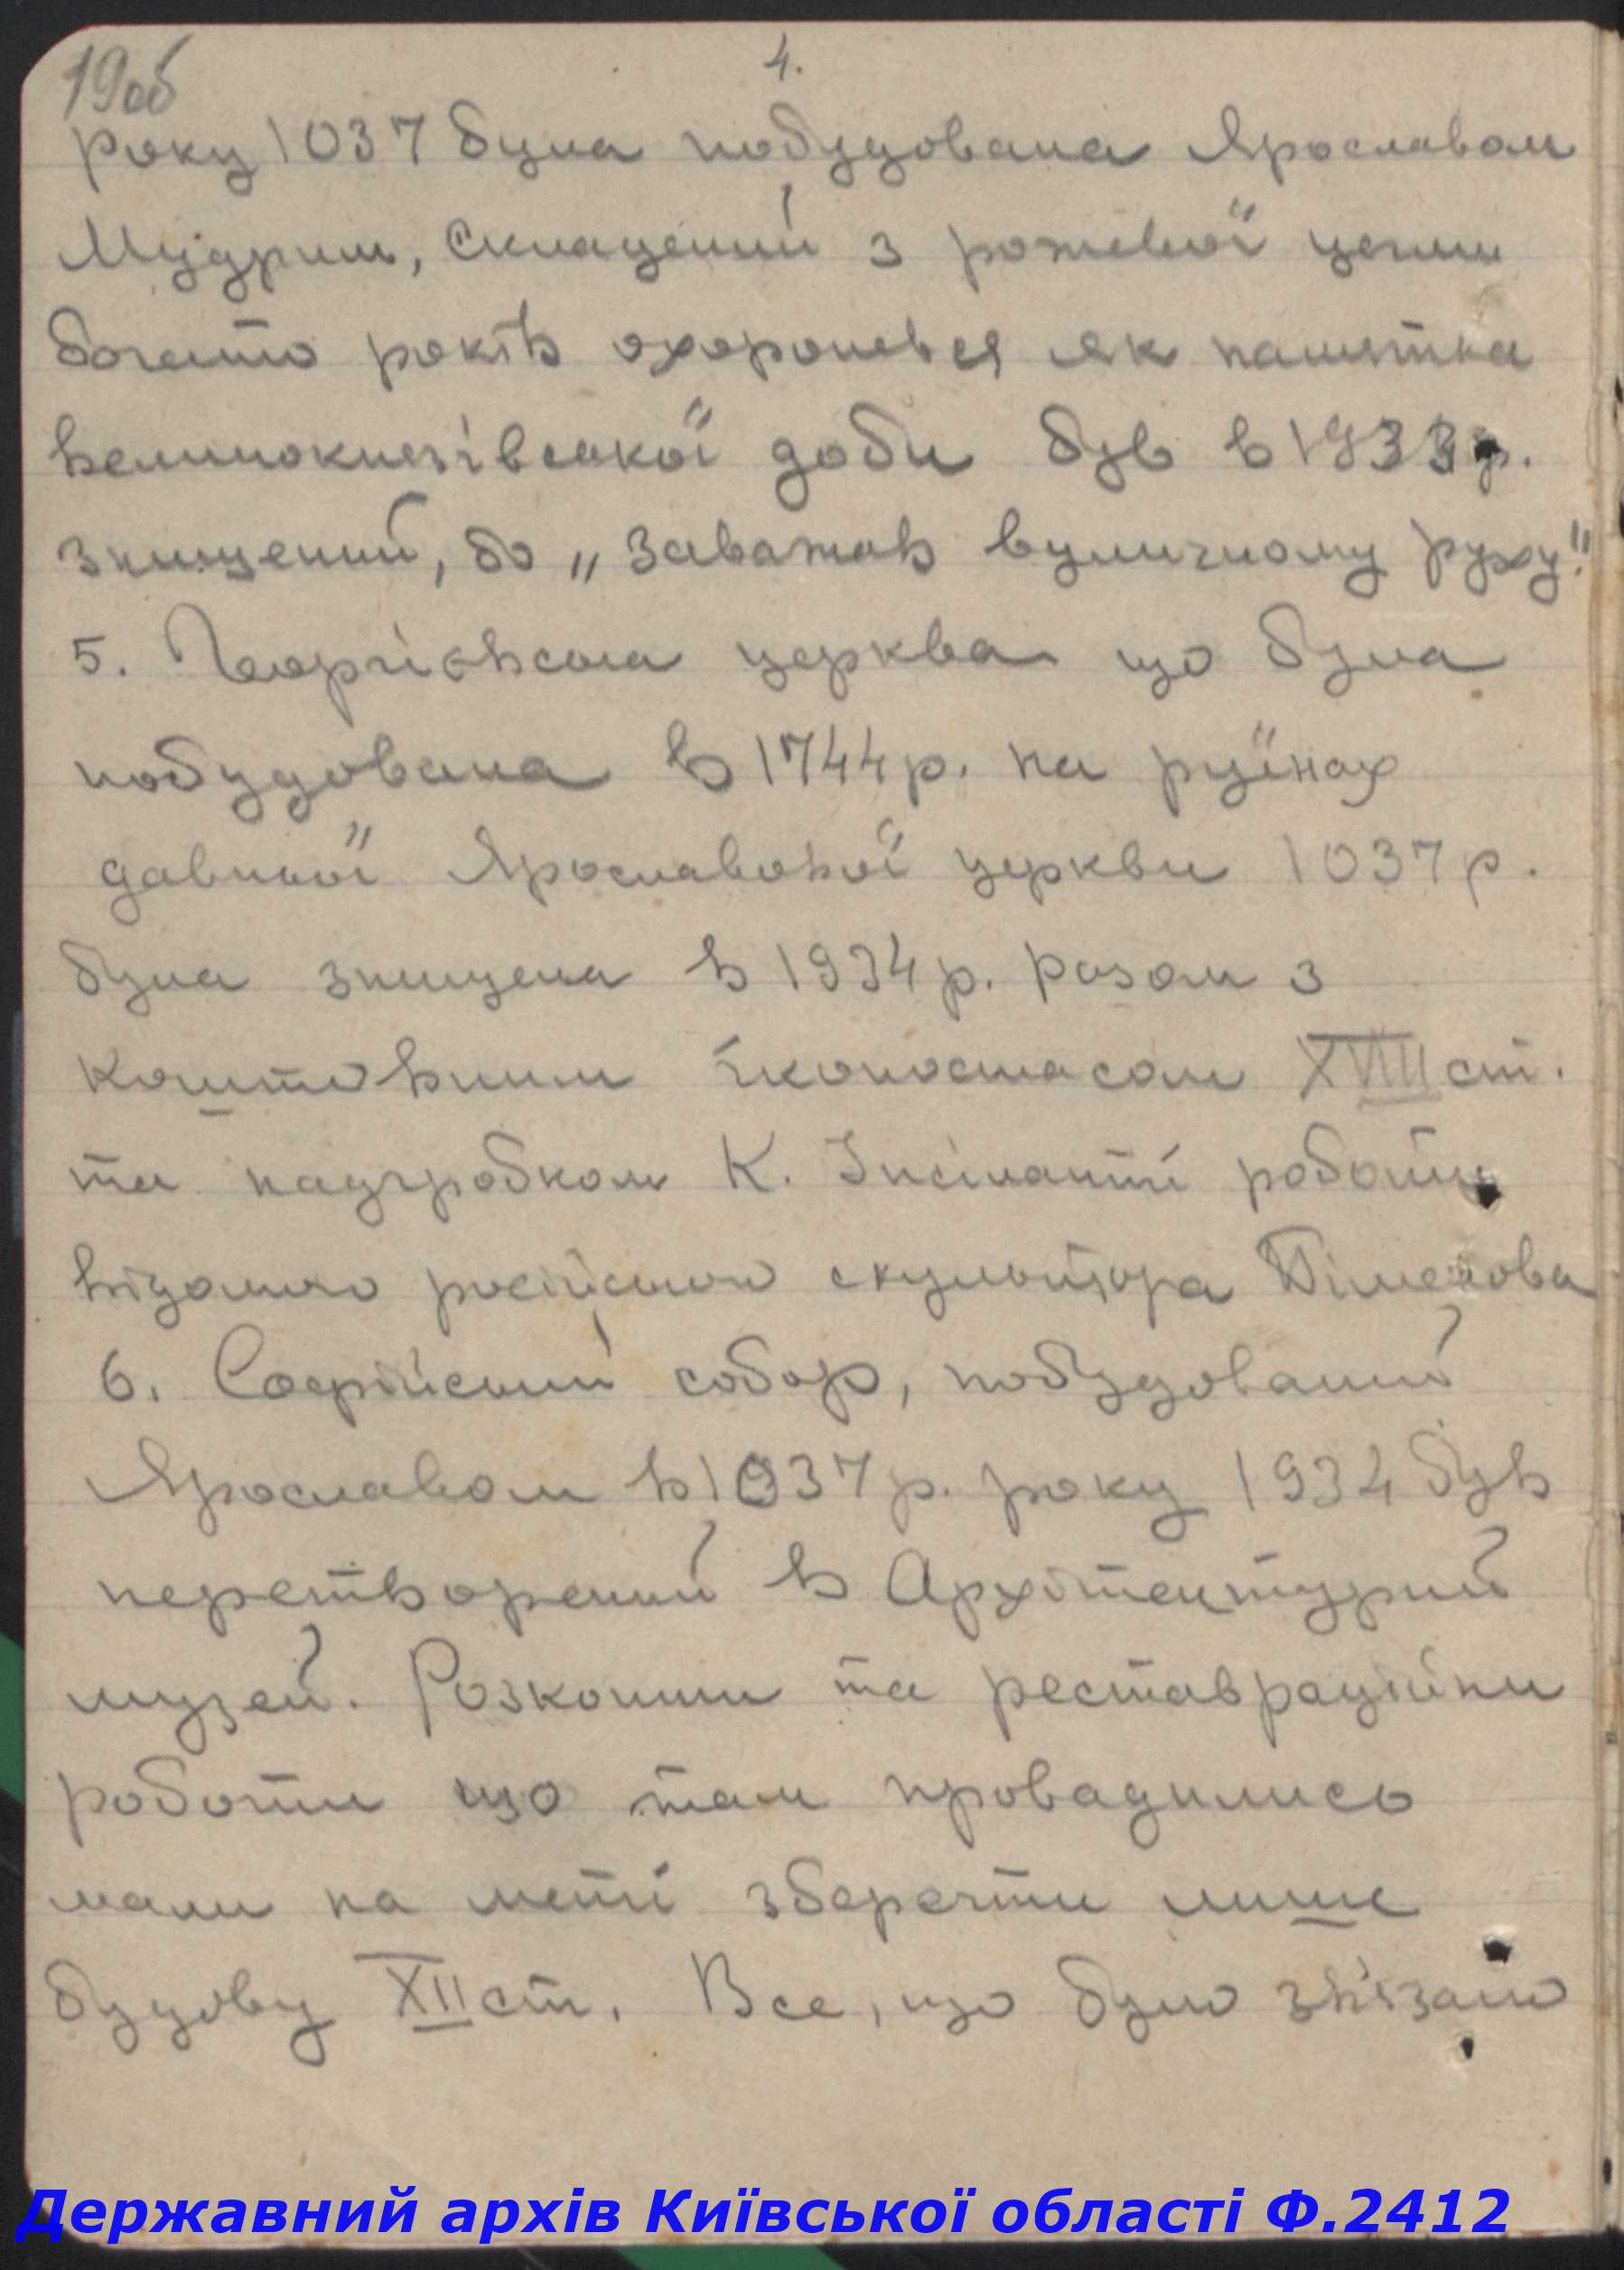 19об
4.
року 1037 була побудована Ярославом
Мудрим, складений з рожевої цегли
богато років охоронявся як памятка
великокнязівської доби був в 1933 р.
знищений, бо „заважав вуличному руху".
5. Георгіевська церква що була
побудована в 1744 р. на руїнах
давньої Ярославової церкви 1037 р.
була знищена в 1934 р. разом з
коштовним іконостасом XVIII ст.
та надгробком К. Іпсіланті роботи
відомого російського скульптора Піменова
6. Софійський собор, побудований
Ярославом в 1037 р. року 1934 був
перетворений в Архітектурий
музей. Розкопки та реставраційни
роботи що там провадились
мали на меті зберегти лише
будову XII ст. Все, що було звязано
Державний архів Київської області Ф.2412